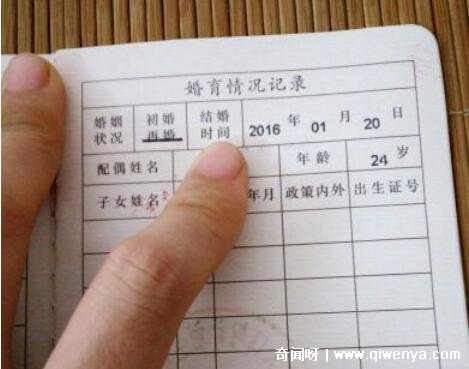 婚育情况记录
婚姻状况 初婚 再婚 结婚时间 2016 年 01 月 20 日
配偶姓名 年龄 24 岁
子女姓名 年月 政策内外 出生证号
奇闻呀 | www.qiwenya.com